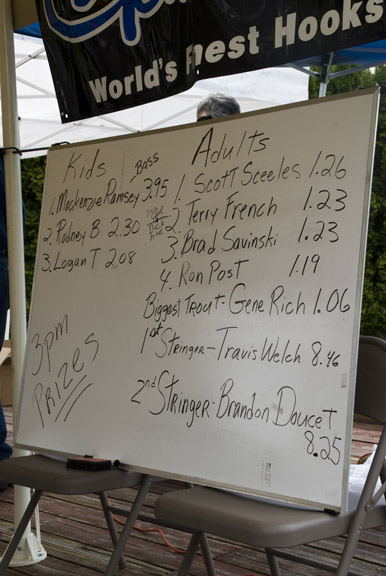 World's Finest Hooks
Kids
Bass
1. Mackenzie Ramsey 3.95
2. Rodney B 2.30
3. Logan T 2.08
3pm
Prizes
Adults
1. Scott Sceeles 1.26
2. Terry French 1.23
3. Brad Savinski 1.23
4. Ron Post 1.19
Biggest Trout - Gene Rich 1.06
1st Stringer - Travis Welch 8.46
2nd Stringer - Brandon Doucet
8.25